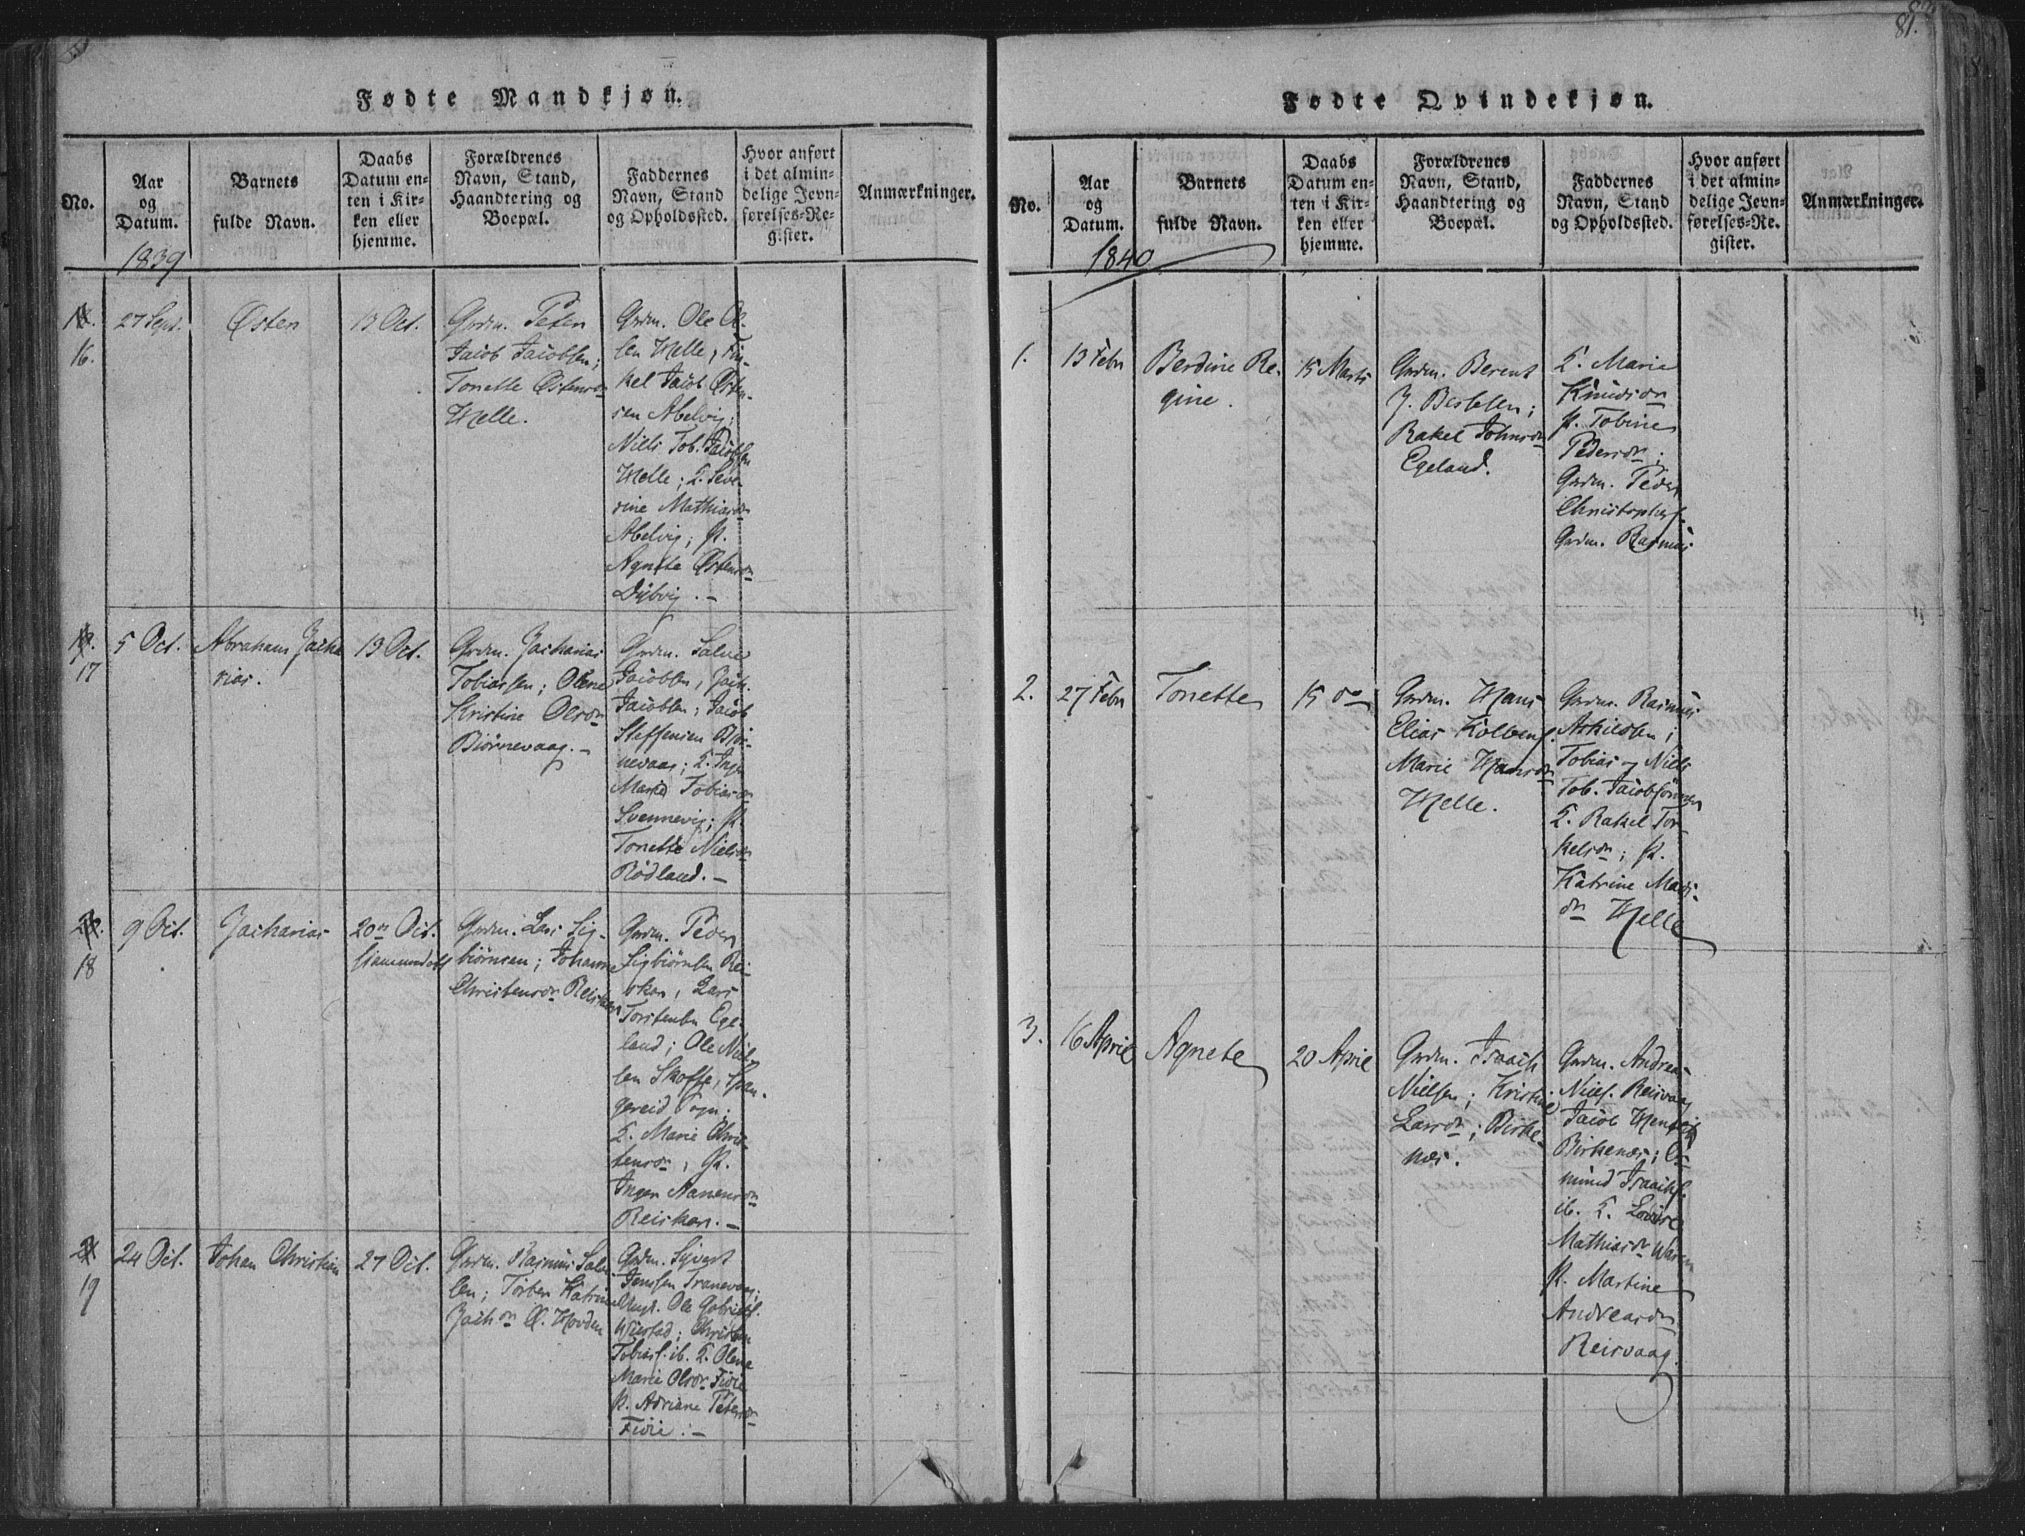 Fødte Mandkjøn.
No.
Aar
og
Datum.
Barnets
fulde Navn.
Daabs
Datum en-
ten i Kir-
ken eller
hjemme.
Forældrenes
Navn, Stand,
Haandtering og
Boepæl.
Faddernes
Navn, Stand
og Opholdssted.
Hvor anført
i det almin-
delige Jevn-
førelses-Re-
gister.
Anmærkninger.
1839
16.
27 Sept.
Østen
13 Oct.
Grdm. Peder
Jacob Jacobsen;
Tonette Østensdr
Helle.
Grdm. Ole Ol-
sen Helle,
kel Jacob Østen-
sen Abelvig;
Niels Tob. Jacobsen
Helle; F. Seve-
rine Mathiasdr
Abelvig; P.
Agnete Østensdr
Dybvig. –
17
5 Oct.
Abraham Zacha
rias.
13 Oct.
Grdm. Zacharias
Tobiassen; Olene
Kristine Olsdr
Biørnevaag. –
Grdm. Salve
Jacobsen, Zach.
Jacobsen, Jacob
Steffensen Biør-
nevaag; F. Inger
Maria Tobiasdr
Svennevig; P.
Tonette Nielsdr
Rødland. –
18
9 Oct.
Zacharias
20de Oct.
Grdm. Lars Sig-
biørnsen; Johanne
Christensdr Reisken
Grdm. Peder
Sigbiørnsen Rei-
sken, Lars
Torstensen Ege-
land; Ole Niel-
sen Skoffe, Span-
gereid Sogn;
F. Marie Chris-
tensdr, P.
Inger Nanensdr
Reisken. –
19
24 Oct.
Johan Christian
27 Oct.
Grdm. Rasmus Salve
sen; Torber Katrine
Zachdr Ø. Hovden
Grdm. Syvert
Jenssen Tranevaag;
Ungk. Ole Gabriels.
Christen
Tobias. ib. F. Olena
Marie Olsdr Fiøie
P. Adriane Petersdr
Fiøie. –
81.
Fødte Qvindekjøn.
No.
Aar
og
Datum.
Barnets
fulde Navn.
Daabs
Datum en-
ten i Kir-
ken eller
hjemme.
Forældrenes
Navn, Stand,
Haandtering og
Boepæl.
Faddernes
Navn, Stand
og Opholdssted.
Hvor anført
i det almin-
delige Jevn-
førelses-Re-
gister.
Anmærkninger.
1840
1.
13 Febr
Berdine Re-
gine.
15 Marts
Grdm. Berent
J. Berntsen;
Rakel Johnsdr
Egeland.
F. Marie
Knudsdr
P. Tobine
Pedersdr;
Grdm. Peder
Christophers.
Grdm. Rasmus
2.
27 Febr
Tonette
15 do
Grdm. Hans
Elias Kolbens.
Marie Hansdr
Helle.
Grdm. Rasmus
Askildsen;
Tobias og Niels
Tob. Jacobsønner
F. Rakel Tor-
kelsdr; P.
Katrine Mads-
dr Helle
3.
16 April
Agnete
20 April
Grdm. Isaach
Nielsen; Kristine
Larsdr; Birke-
næs.
Grdm. Andreas
Niels. Reisvaag
Jacob Hendrik
Birkenæs; Os-
mund Isaachs.
ib. F. Lovise
Mathiasdr
P. Martine
Andreasdr
Reisvaag.